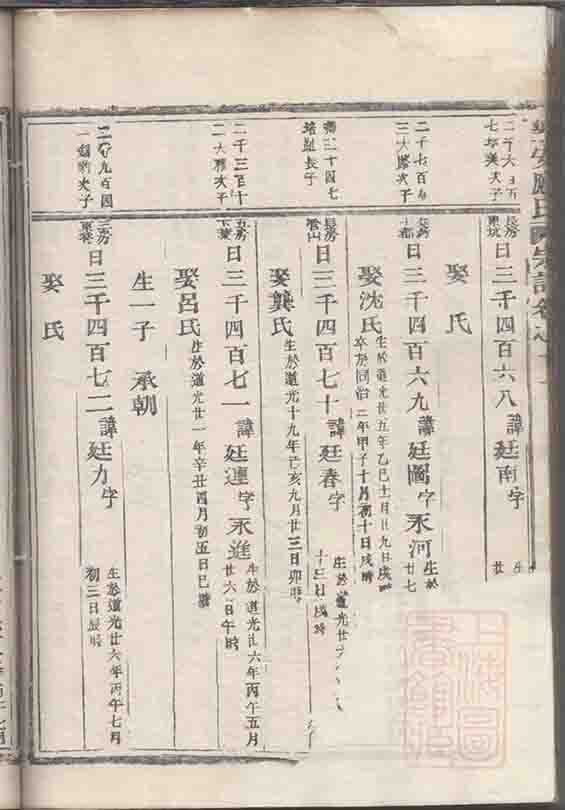 應氏宗譜卷之
長房
東坑
日三千四百六八 諱廷南字
娶 氏
二千七百
三大 次子
日三千四百六九 諱廷圖字永河 生於
廿七
娶沈氏 生於道光廿五年乙巳十一月廿九日戌時
卒於同治二年甲子十月初十日戌時
二十四七
長子
長房
管山
日三千四百七十 諱廷春字 生於道光廿
十三日戌時
娶龔氏 生於道光十九年己亥九月廿三日卯時
二千三百十
二大 次子
五房
日三千四百七一 諱廷連字永進 生於道光廿六年丙午五月
廿六日午時
娶呂氏 生於道光廿一年辛丑四月初五日巳時
生一子 承朝
二千九百四
一 次子
日三千四百七二 諱廷力字 生於道光廿六年丙午七月
初三日辰時
娶 氏
上海圖書館藏